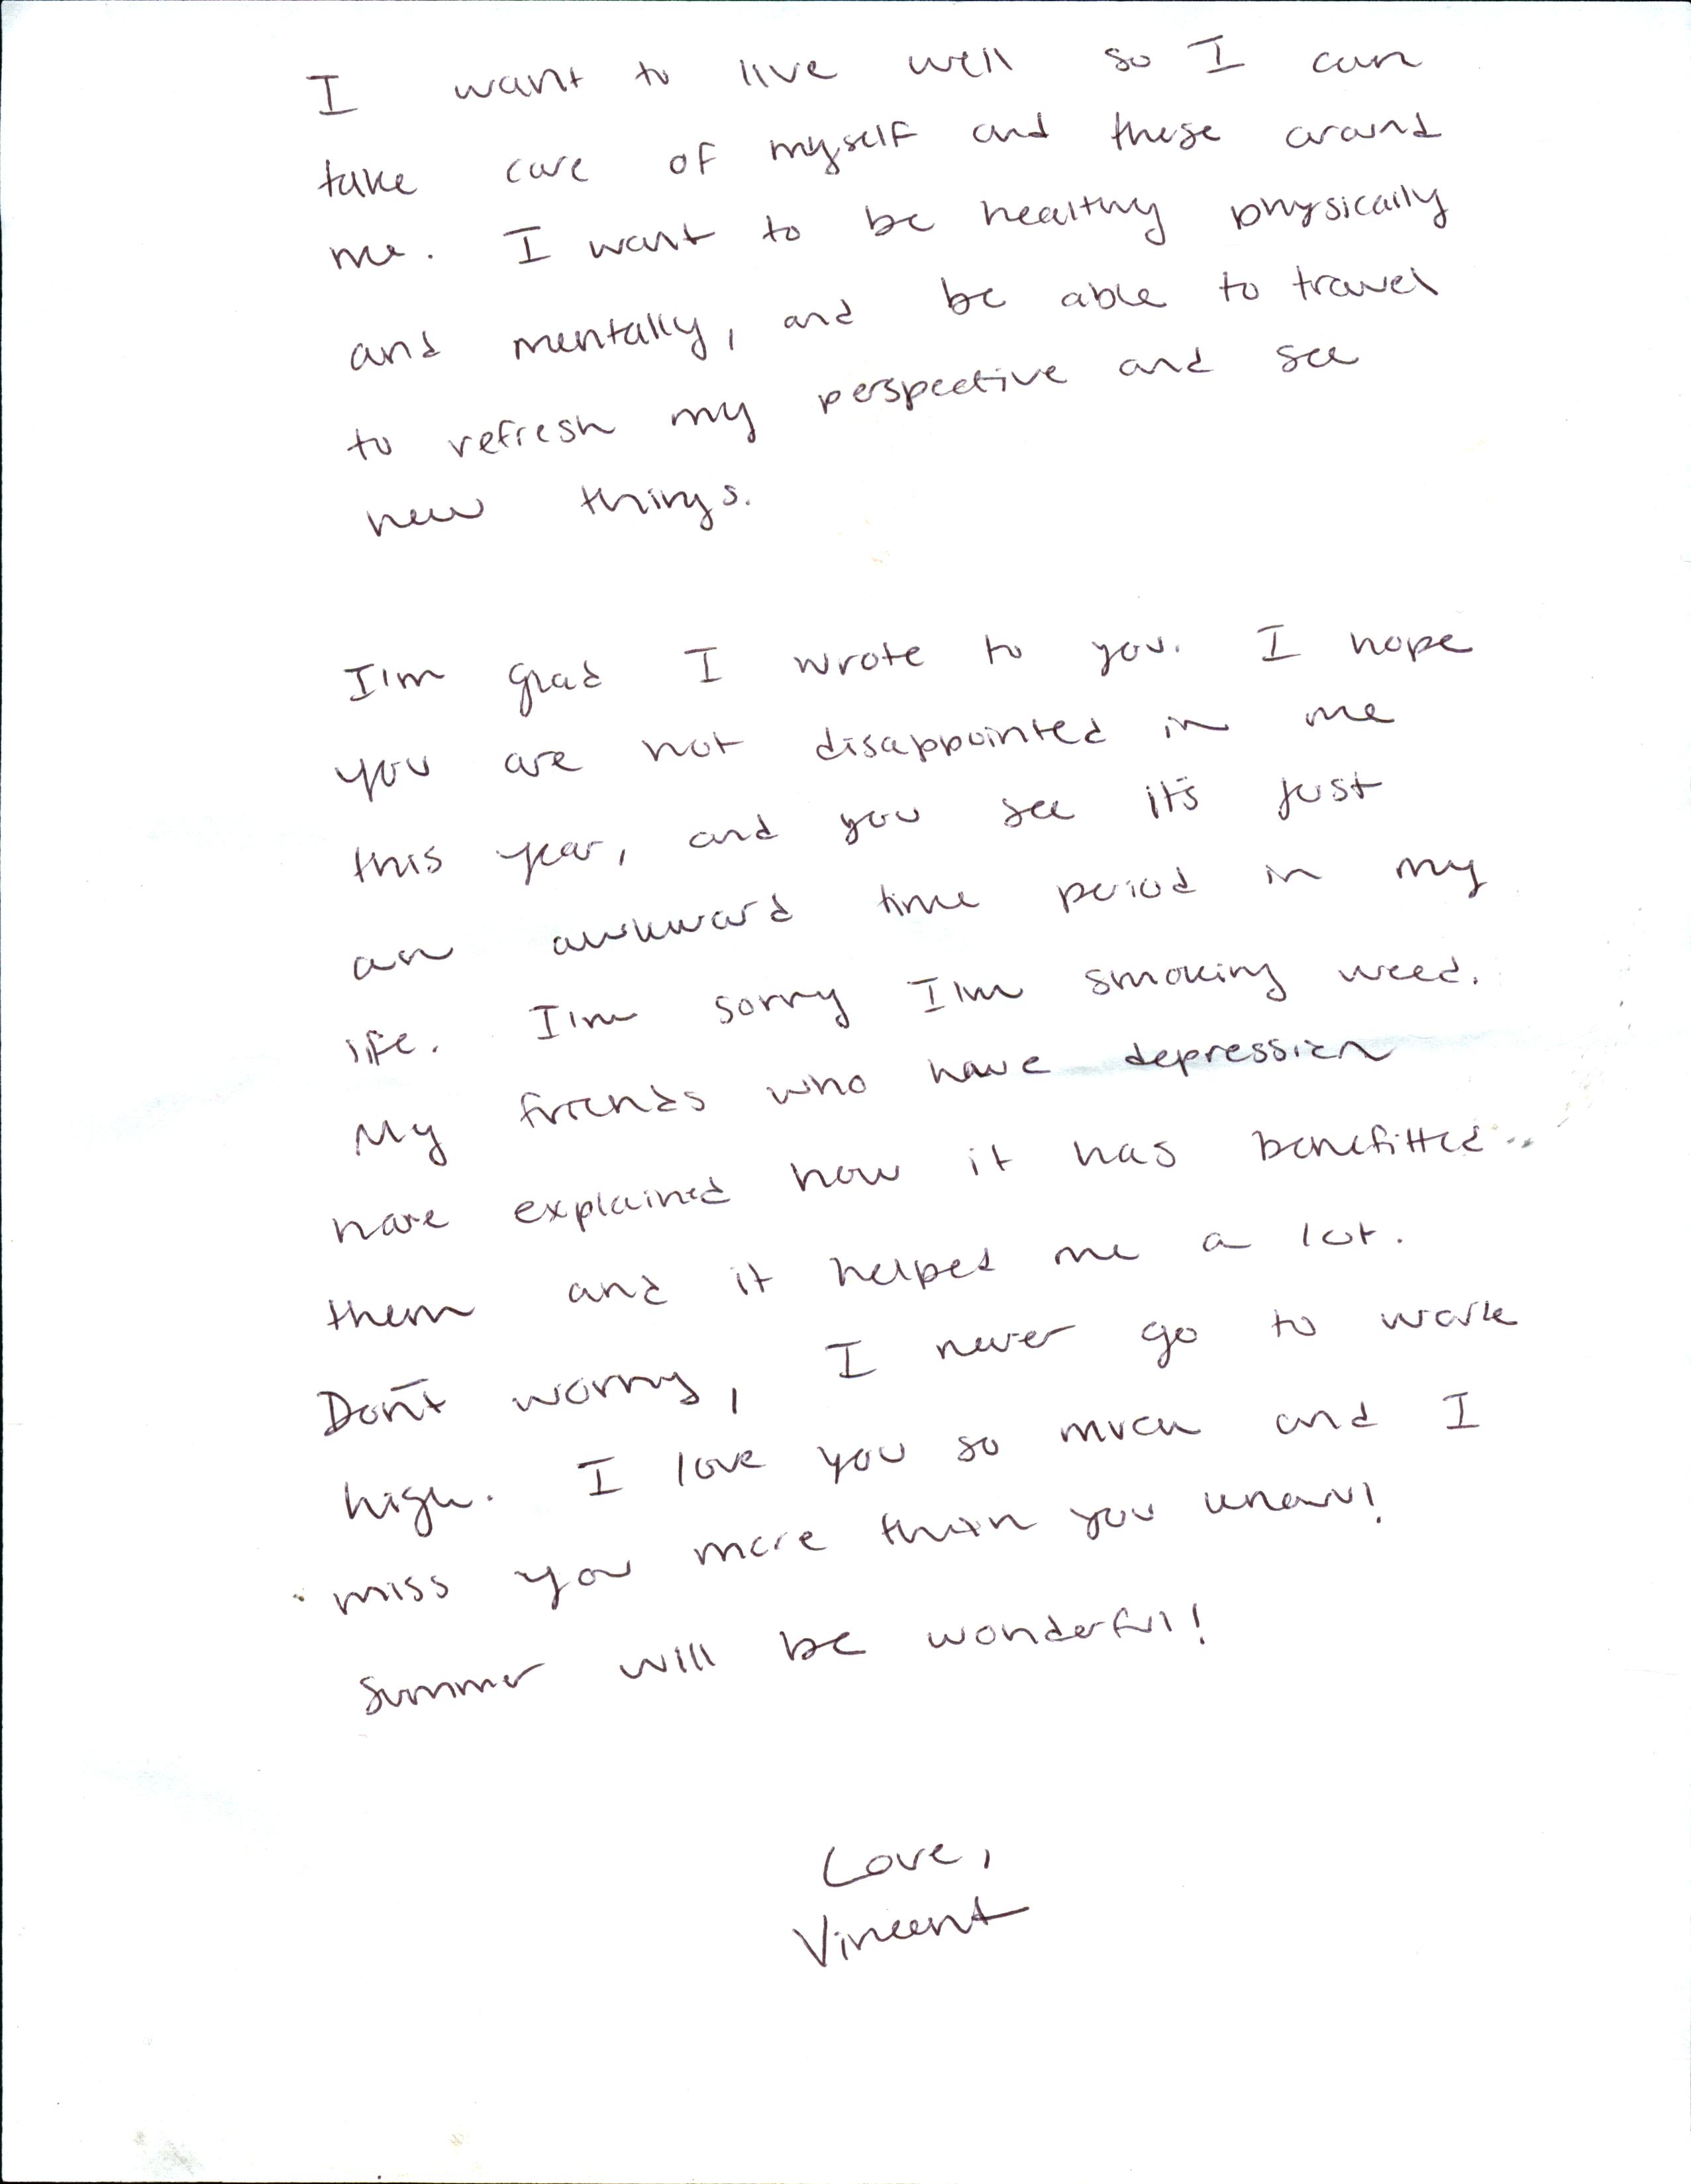 I want to live well so I can
take care of myself and those around
me. I want to be healthy physically
and mentally, and be able to travel
to refresh my perspective and see
new things.
I'm glad I wrote to you. I hope
you are not disappointed in me
this year, and you see it's just
an awkward time period in my
life. I'm sorry I'm smoking weed.
My friends who have depression
have explained how it has benefitted
them and it helped me a lot.
Don't worry, I never go to work
high. I love you so much and I
miss you more than you know!
Summer will be wonderful!
Love,
Vincent